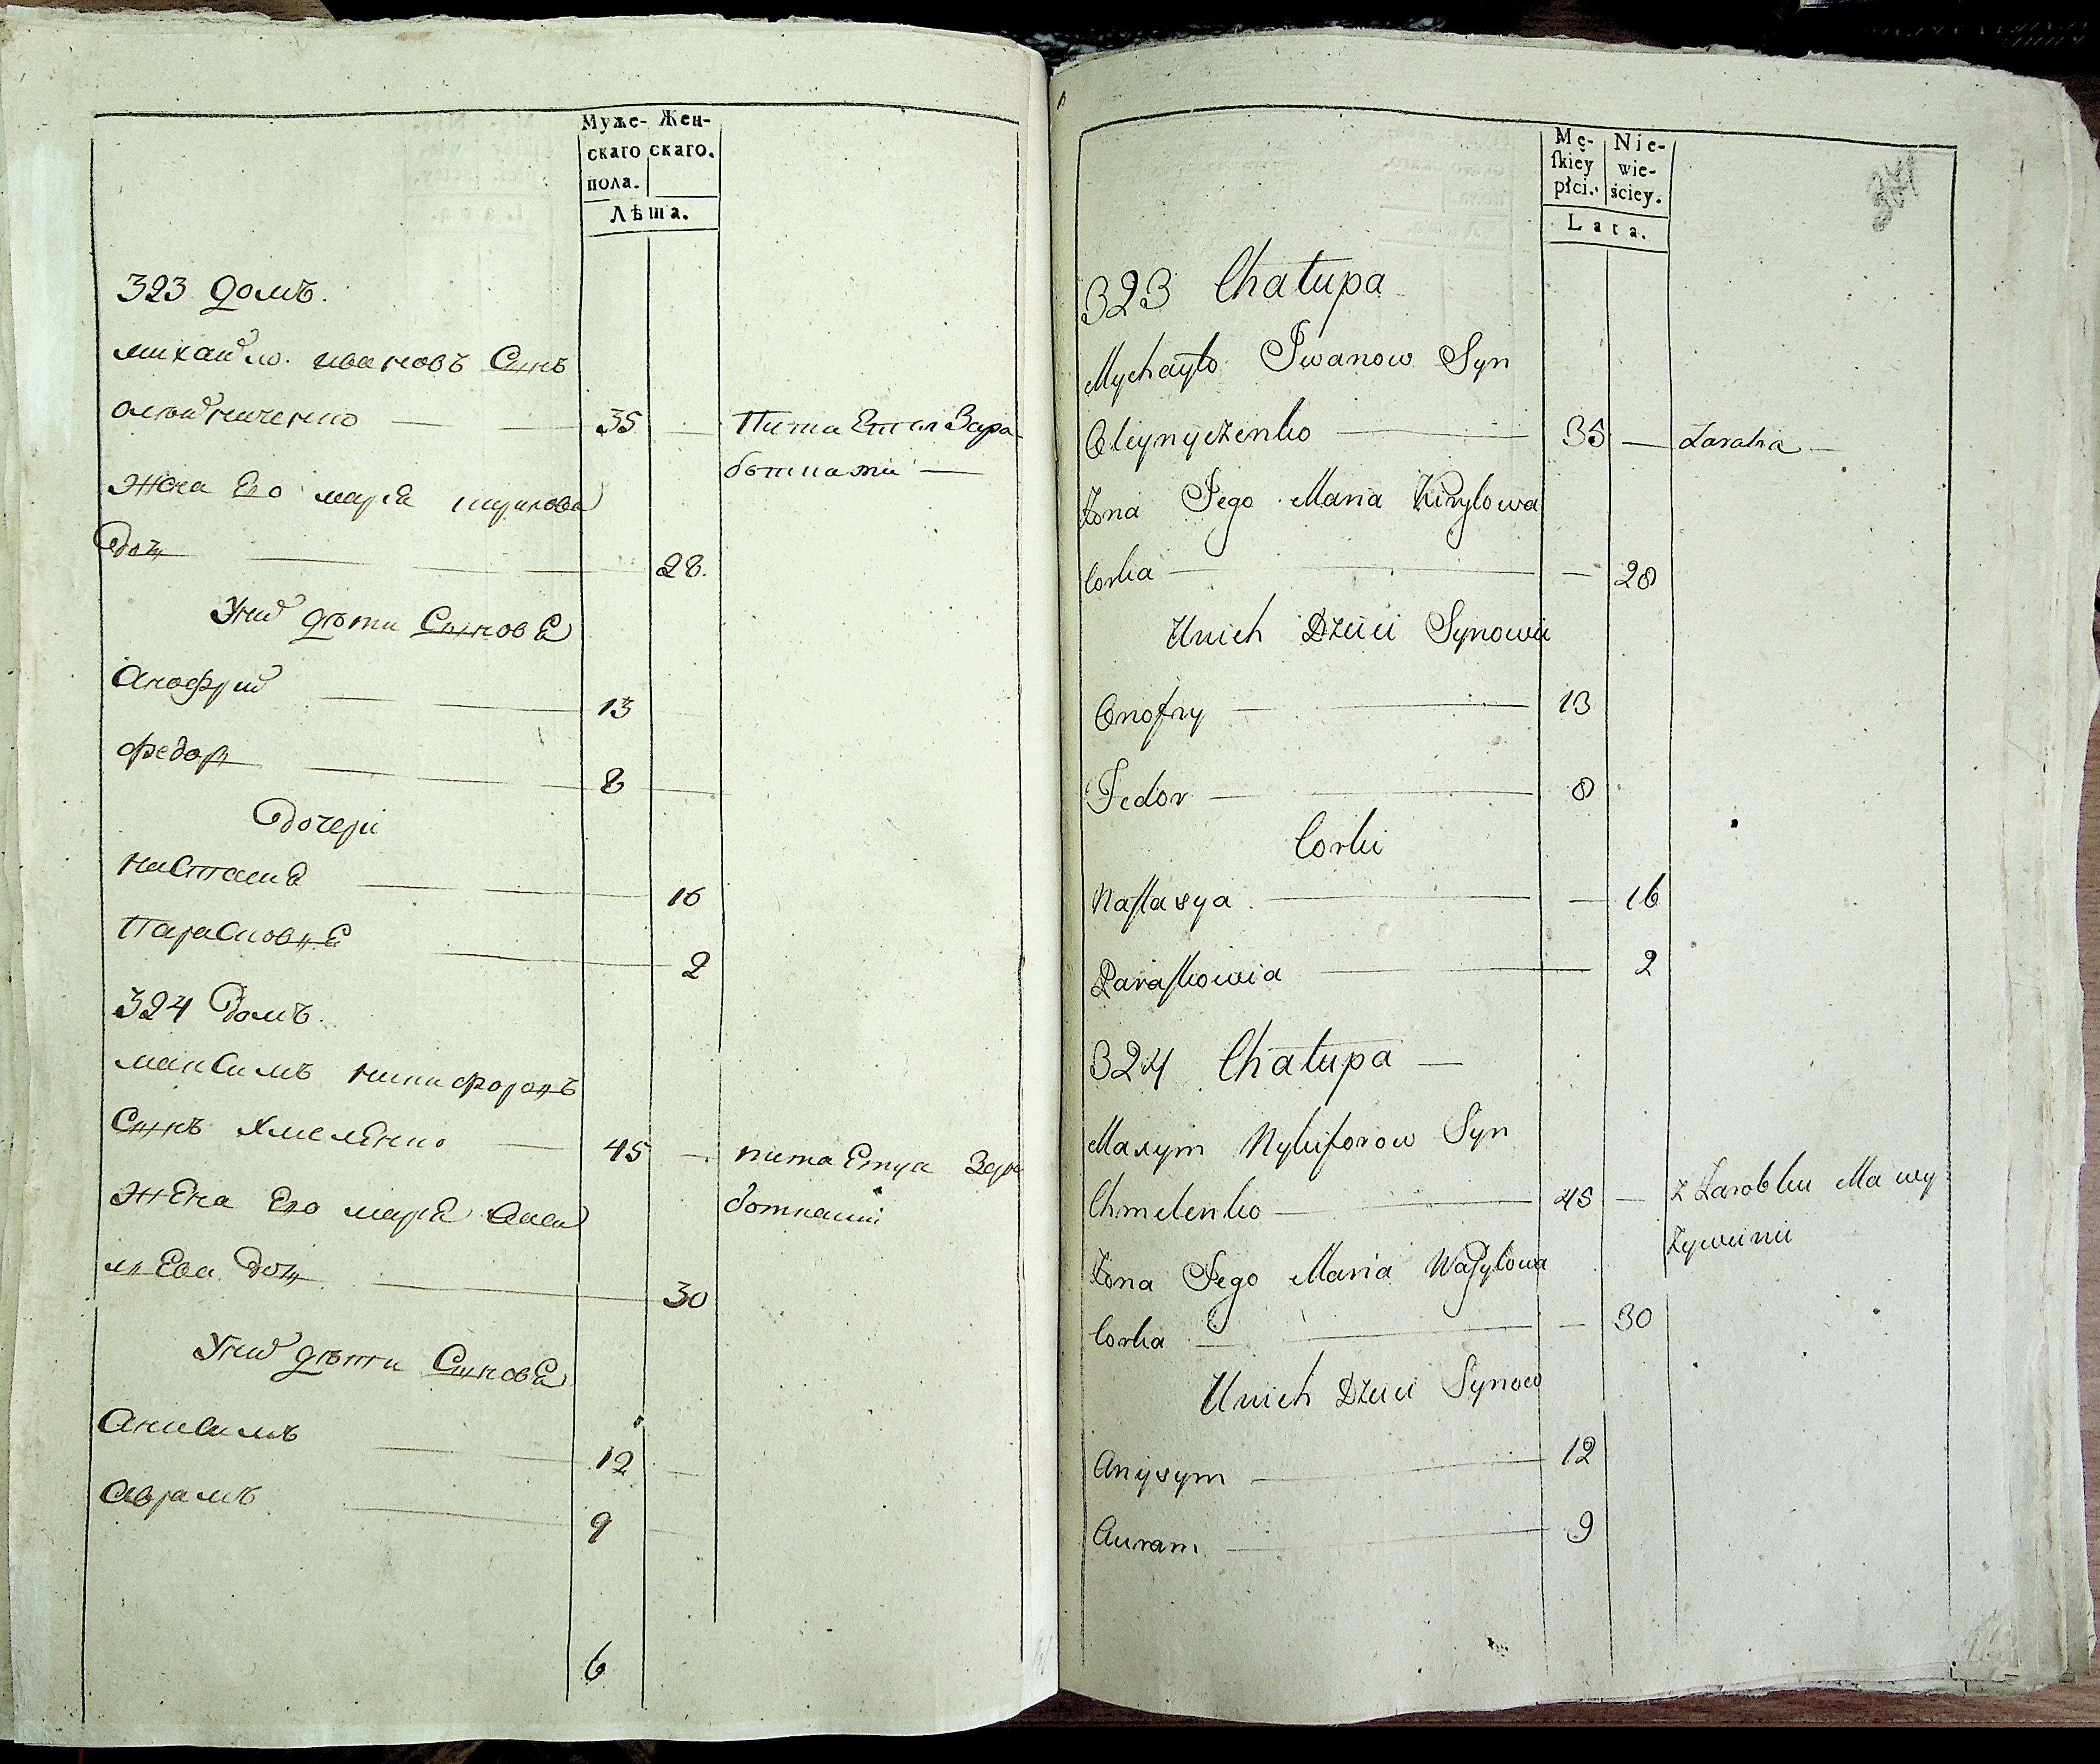 Муже- Жен-
скаго скаго.
пола.
Лѣта.
323 домъ.
михайло ивановъ Сынъ
олѣйниченко 35 Пита Ется Зара-
ботками
жена Его марія кирилова
доч 28.
У них дѣти СыновЯ
Анофрий 13
федор 8
Дочери
настасиЯ 16
ПараСковиЯ 2
324 домъ.
макСимъ никифоровъ
Сынъ хмелЕнко 45 пита Етца Зара
ботками
жЕна Его марія васи
лЕва доч 30
У них дѣти СыновЯ
АниСимъ 12
Аврамъ 9
6
Mę- Nie-
ſkiey wie-
płci. ściey.
Lata.
341
323 Chałupa
Mychayło Iwanow Syn
Oleynyczenko 35 Zarabia
Zona Jego Maria Kiryłowa
Corka 28
Unich Dzieci Synowie
Onofry 13
Fedor 8
Corki
Naſtasya 16
Paraſkowia 2
324 Chałupa
Maxym Nykiforow Syn
Chmelenko 45 z Zarobku Ma wy
Zona Jego Maria Waſylowa żywieniie
Corka 30
Unich Dzieci Synow
Anysym 12
Auram 9